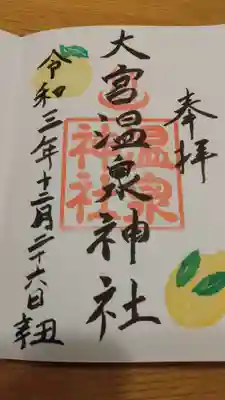 奉拝
大宮温泉神社
温泉
神社
令和三年十二月二十六日辛丑